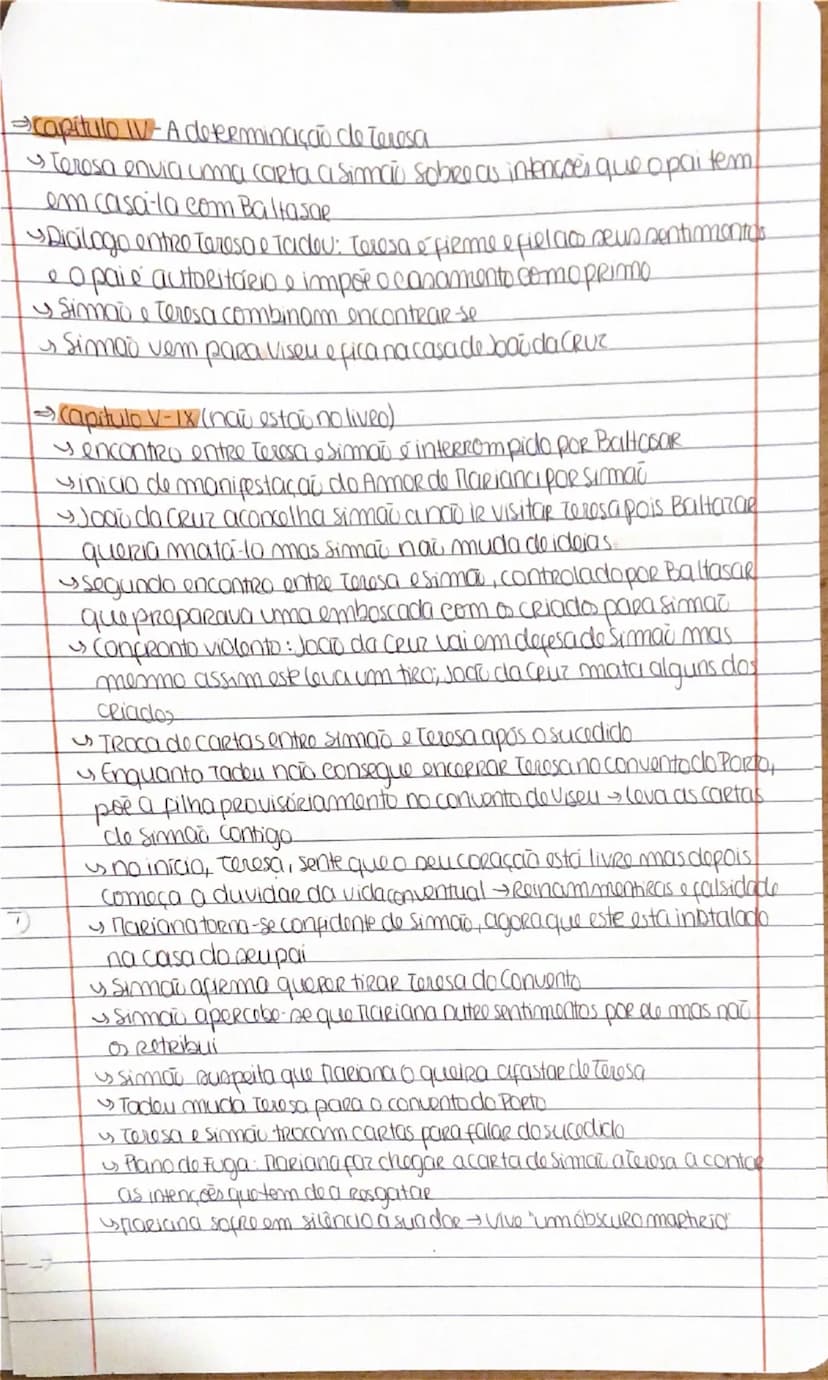 ⇒ Capítulo IV - A determinação de Teresa
↳ Teresa envia uma carta a Simão sobre as intenções que o pai tem
em casá-la com Baltasar
↳ Diálogo entre Teresa e Tadeu: Teresa é firme e fiel aos seus sentimentos
e o pai é autoritário e impõe o casamento com o primo
↳ Simão e Teresa combinam encontrar-se
↳ Simão vem para Viseu e fica na casa de João da Cruz
⇒ Capítulo V-IX (não estão no livro)
↳ encontro entre Teresa e Simão é interrompido por Baltasar
↳ início de manifestação do Amor de Mariana por Simão
↳ João da Cruz aconselha Simão a não ir visitar Teresa pois Baltazar
queria matá-lo mas Simão não muda de ideias
↳ segundo encontro entre Teresa e Simão, controlado por Baltasar
que preparava uma emboscada com os criados para Simão
↳ Confronto violento: João da Cruz vai em defesa de Simão mas
mesmo assim este leva um tiro; João da Cruz mata alguns dos
criados
↳ Troca de cartas entre Simão e Teresa após o sucedido
↳ Enquanto Tadeu não consegue encerrar Teresa no convento do Porto,
põe a filha provisóriamente no convento de Viseu → leva as cartas
de Simão contigo
↳ no início, Teresa, sente que o seu coração está livre mas depois
começa a duvidar da vida conventual → Reinam mentiras e falsidade
↳ Mariana torna-se confidente de Simão, agora que este está instalado
na casa do seu pai
↳ Simão afirma querer tirar Teresa do Convento
↳ Simão apercebe-se que Mariana nutre sentimentos por ele mas não
os retribui
↳ Simão suspeita que Mariana o queira afastar de Teresa
↳ Tadeu muda Teresa para o convento do Porto
↳ Teresa e Simão trocam cartas para falar do sucedido
↳ Plano de Fuga: Mariana faz chegar a carta de Simão a Teresa a contar
as intenções que tem de a resgatar
↳ Mariana sofre em silêncio a sua dor → vive "um obscuro martírio"